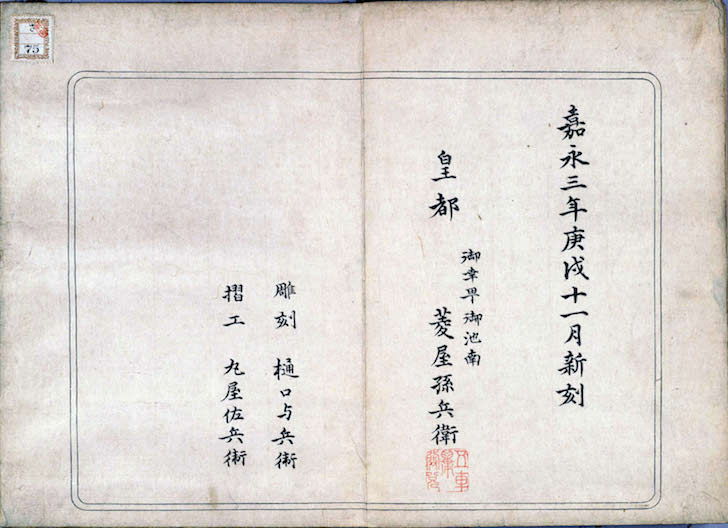 嘉永三年庚戌十一月新刻
皇都
御幸甼御池南
菱屋孫兵衛
雕刻 樋口与兵衛
摺工 丸屋佐兵衛
75